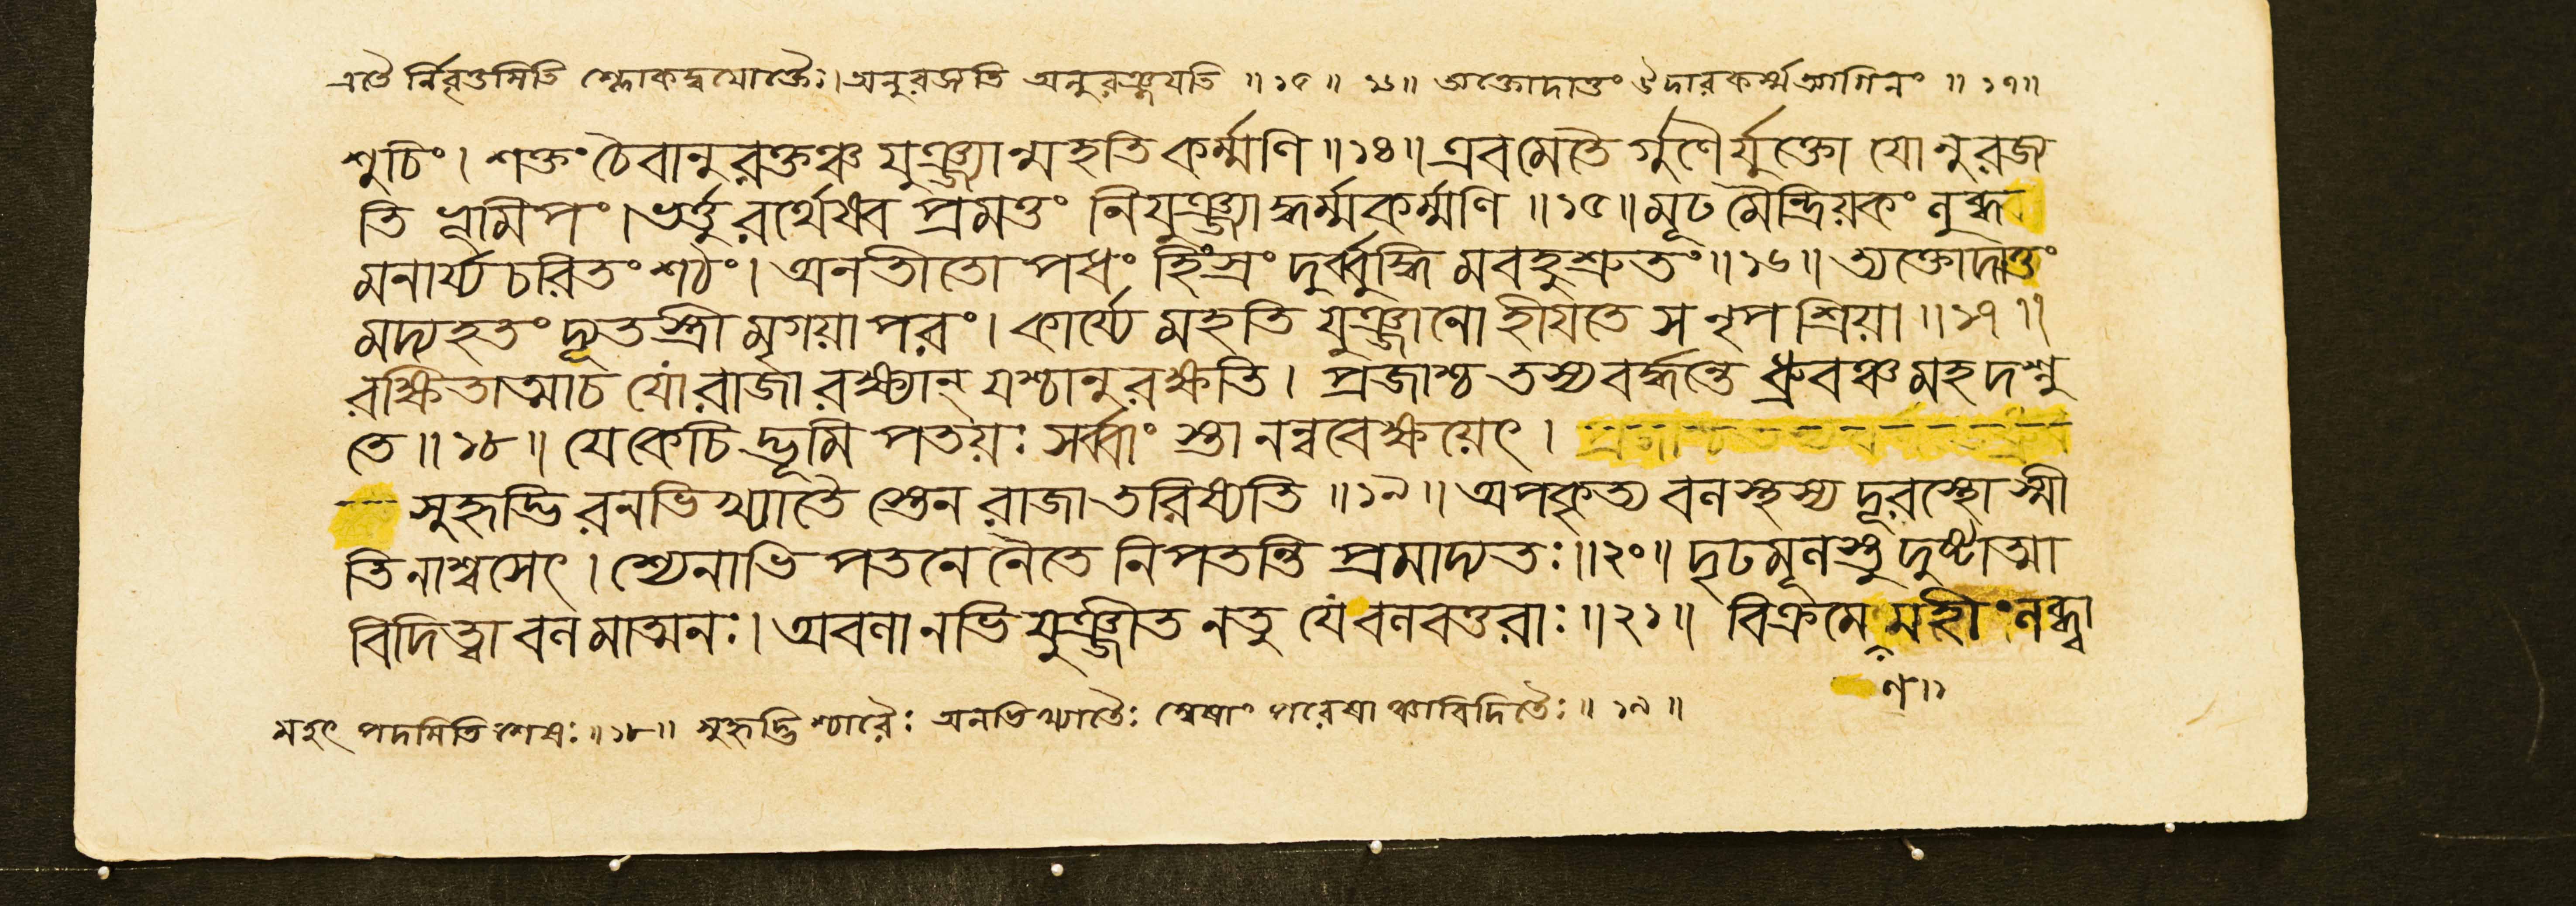 এতৈ র্নিবৃতমিতি শ্লোকদ্বয়োক্তৈঃ। অনুরজ্যতি অনুরঞ্জয়তি ॥ ১৫ ॥ ১৬॥ ত্যক্তোদাত্তং ঔদার্যকর্ম্মত্যাগিনং ॥ ১৭॥
শুচিং। শক্তং চৈবানুরক্তঞ্চ যুঞ্জ্যান্মহতি কর্ম্মণি ॥১৪॥ এবমেতৈ র্গুণৈর্যুক্তো যোনুরজ্য
তি ভূমিপং। ভর্ত্তুরর্থেষ্বপ্রমত্তং নিযুঞ্জ্যাদ্ধর্ম্মকর্ম্মণি ॥১৫॥ মূঢমৈন্দ্রিয়কং লুব্ধ
মনার্য্যচরিতং শঠং। অনতীতোপধং হিংস্রং দুর্ব্বুদ্ধিমবহুশ্রুতং॥১৬॥ ত্যক্তোদাত্তং
মদ্যহতং দ্যূতস্ত্রীমৃগয়াপরং। কার্য্যে মহতি যুঞ্জানো হীয়তে স নৃপশ্রিয়া॥১৭॥
রক্ষিতাত্মা চ যো রাজা রক্ষ্যান্ যশ্চানুরক্ষতি। প্রজাশ্চ তস্য বর্দ্ধন্তে ধ্রুবঞ্চ মহদশ্নু
তে॥১৮॥ যে কেচিদ্ভূমিপতয়ঃ সর্ব্বাং স্তানন্ববেক্ষয়েৎ।
সুহৃদ্ভিরনভিখ্যাতৈ স্তেন রাজাতরিষ্যতি ॥১৯॥ অপকৃত্য বলস্থস্য দূরস্থোস্মী
তি নাশ্বসেৎ। শ্যেনাভিপতনেনৈতে নিপতন্তি প্রমাদ্যতঃ॥২০॥ দৃঢমূলস্তু দুষ্টাত্মা
বিদিত্বা বলমাত্মনঃ। অবলানভিযুঞ্জীত নতু যে বলবত্তরাঃ॥২১॥ বিক্রমেণ মহীং লব্ধ্বা
ণ॥১
মহৎ পদমিতি শেষঃ॥১৮॥ সুহৃদ্ভিশ্চারৈঃ অনভিখ্যাতৈঃ স্বেষাং পরেষাঞ্চাবিদিতৈঃ॥ ১৯ ॥